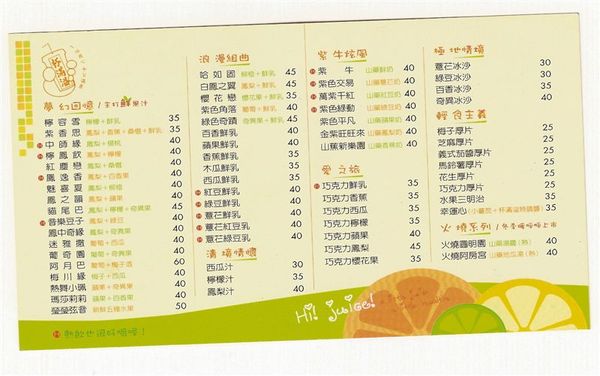 夢幻回憶 / 主打鮮果汁
檸容雪 檸檬+鮮乳 35
紫香思 鳳梨+香蕉+桑椹+鮮乳 35
H 中師緣 鳳梨+楊桃 40
H 檸鳳飲 鳳梨+檸檬 40
紅塵戀 鳳梨+桑椹 40
H 鳳逸香 鳳梨+百香果 40
魅喜夏 鳳梨+柳橙 40
鳳之韻 鳳梨+蘋果 40
貓尾巴 鳳梨+檸檬+奇異果 45
H 音樂豆子 鳳梨+綠豆 50
鳳中奇緣 鳳梨+奇異果 40
迷雅撒 葡萄+西瓜 40
葡奇園 葡萄+奇異果 40
阿月巴 葡萄+梅子酒 60
梅川緣 梅子+西瓜 40
熱舞小珮 蘋果+奇異果 40
瑪莎莉莉 蘋果+百香果 40
瑩瑩弦音 新鮮五種水果 50
H 熱飲也很好喝喔！
浪漫組曲
哈如固 柳橙+鮮乳 45
白鳳之翼 鳳梨+鮮乳 45
櫻花戀 櫻花果+鮮乳 35
紫色角落 葡萄+鮮乳 50
綠色奇蹟 奇異果+鮮乳 45
百香鮮乳 40
蘋果鮮乳 40
香蕉鮮乳 35
木瓜鮮乳 35
西瓜鮮乳 35
H 紅豆鮮乳 40
H 綠豆鮮乳 40
H 薏芒鮮乳 40
H 薏芒紅豆乳 40
H 薏芒綠豆乳 40
清境情懷
西瓜汁 30
檸檬汁 35
鳳梨汁 40
紫牛炫風
H 紫牛 山藥鮮奶 40
H 紫色交易 山藥薏芒奶 40
H 萬紫千紅 山藥紅豆奶 40
H 紫色綠動 山藥綠豆奶 40
紫色平凡 山藥蘋果奶 40
金紫旺旺來 山藥鳳梨奶 40
山蕉新樂園 山藥香蕉奶 40
愛之旅
巧克力鮮乳 35
巧克力香蕉 35
巧克力西瓜 35
巧克力檸檬 35
巧克力蘋果 40
巧克力鳳梨 45
巧克力櫻花果 35
極地情境
薏芒冰沙 30
綠豆冰沙 30
百香冰沙 35
奇異冰沙 40
輕食主義
梅子厚片 25
芝麻厚片 25
義式茄醬厚片 25
馬鈴薯厚片 25
花生厚片 25
巧克力厚片 25
水果三明治 35
幸運心
火燒系列 / 冬季暖呼呼上市
火燒圓明園 40
火燒阿房宮 40
Hi! juice!